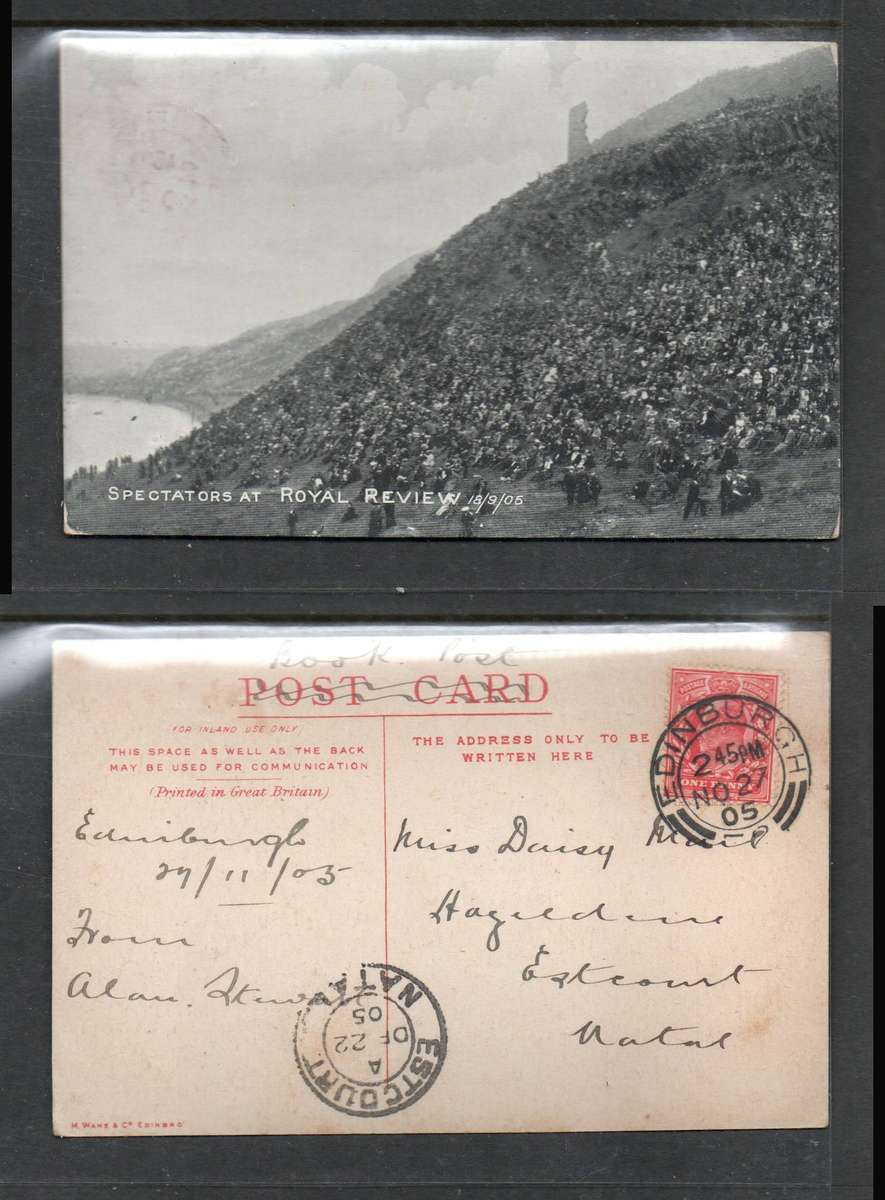 SPECTATORS AT ROYAL REVIEW 18/9/05
Book Post
POST CARD
FOR INLAND USE ONLY
THIS SPACE AS WELL AS THE BACK
MAY BE USED FOR COMMUNICATION
(Printed in Great Britain)
THE ADDRESS ONLY TO BE
WRITTEN HERE
POSTAGE REVENUE
ONE PENNY
EDINBURGH
2 45PM
NO 27
05
Edinburgh
27/11/05
From
Alan. Stewart
Miss Daisy
Hazeldene
Estcourt
Natal
ESTCOURT NATAL
A
DE 22
05
M. WANE & Co EDINBRO'